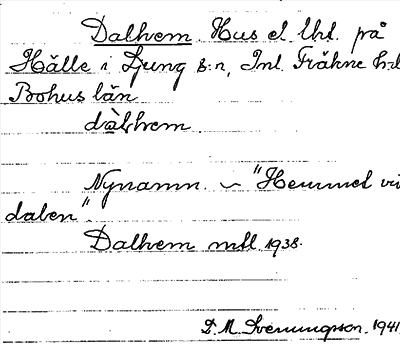 Dalhem. Hus el. lht. på
Hälle i Ljung s:n, Inl. Fräkne h:d
Bohus län
dàlhem
Nynamn. ~ "Hemmet vi
dalen".
Dalhem mtl 1938.
D. M. Svenungsson. 1941